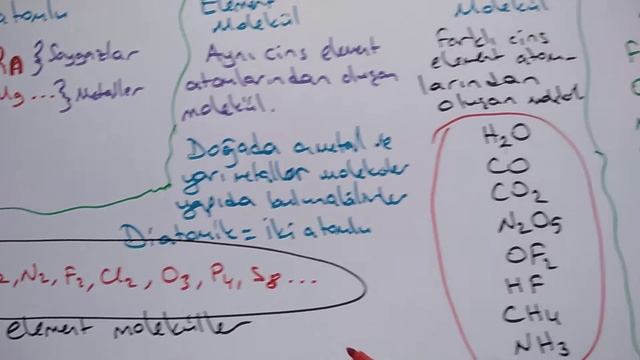 atomlu
RA } Soygazlar
Mg ... } Metaller
Element
Molekül
Aynı cins element
atomlarından oluşan
molekül.
Doğada ametal ve
yarı metaller moleküler
yapıda bulunabilirler
Diatomik = iki atomlu
N2, F2, Cl2, O3, P4, S8 ...
element moleküller
Molekül
farklı cins
element atom-
larından
oluşan
H2O
CO
CO2
N2O5
OF2
HF
CH4
NH3